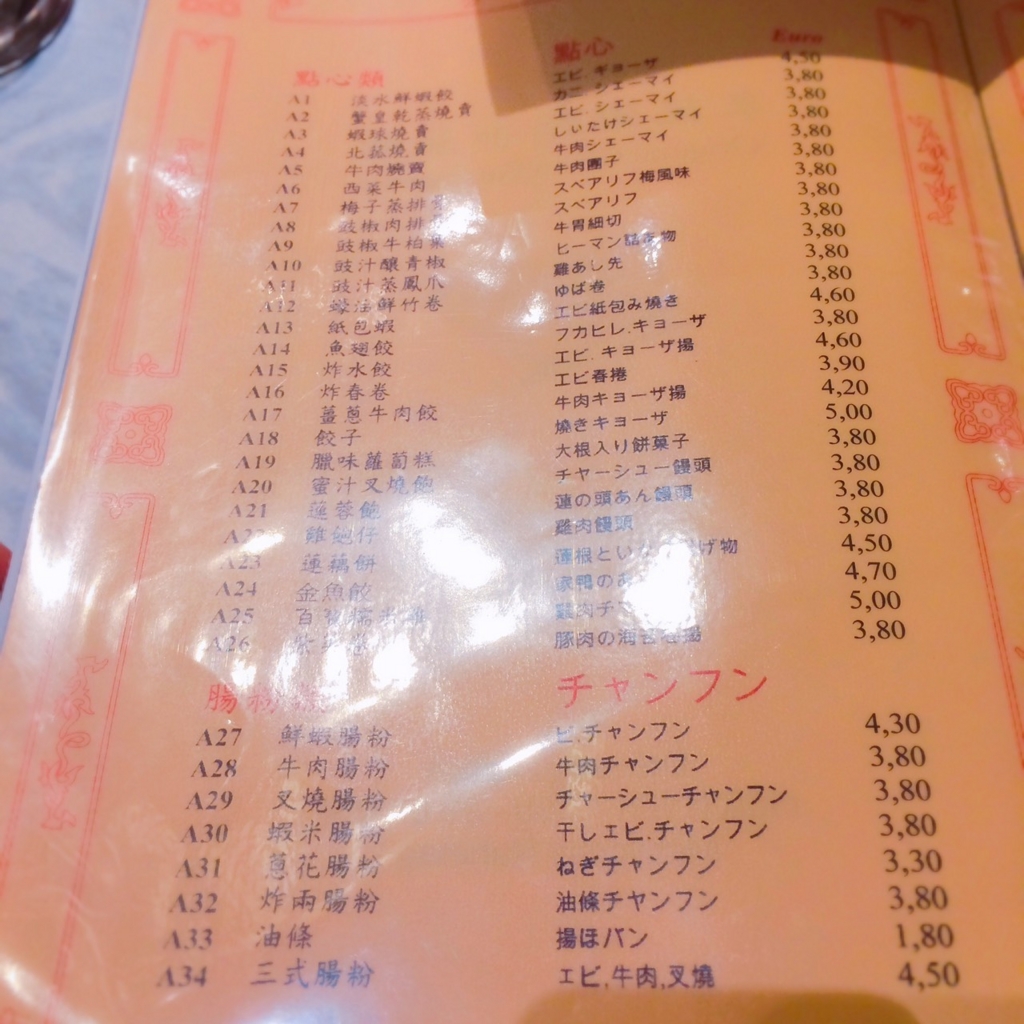 點心類 點心 Euro
A1 淡水鮮蝦餃 エビ.ギョーザ 4,50
A2 蟹皇乾蒸燒賣 カニ.シェーマイ 3,80
A3 蝦球燒賣 エビ.シェーマイ 3,80
A4 北菰燒賣 しいたけシェーマイ 3,80
A5 牛肉燒賣 牛肉シェーマイ 3,80
A6 西菜牛肉 牛肉團子 3,80
A7 梅子蒸排骨 スペアリフ梅風味 3,80
A8 豉椒肉排 スペアリフ 3,80
A9 豉椒牛柏葉 牛胃細切 3,80
A10 豉汁釀青椒 ピーマン詰め物 3,80
A11 豉汁蒸鳳爪 雞あし先 3,80
A12 鮮竹卷 ゆば巻 3,80
A13 紙包蝦 エビ紙包み燒き 4,60
A14 魚翅餃 フカヒレ.キョーザ 3,80
A15 炸水餃 エビ.キョーザ揚 4,60
A16 炸春卷 エビ春捲 3,90
A17 薑蔥牛肉餃 牛肉キョーザ揚 4,20
A18 餃子 燒きキョーザ 5,00
A19 臘味蘿蔔糕 大根入り餅菓子 3,80
A20 蜜汁叉燒飽 チャーシュー饅頭 3,80
A21 蓮蓉飽 蓮の頭あん饅頭 3,80
A22 雞飽仔 雞肉饅頭 3,80
A23 蓮藕餅 蓮根とい げ物 4,50
A24 金魚餃 家鴨のあ 4,70
A25 百 糯米雞 鷄肉チマ 5,00
A26 豚肉の海苔巻揚 3,80
腸粉 チャンフン
A27 鮮蝦腸粉 ビ.チャンフン 4,30
A28 牛肉腸粉 牛肉チャンフン 3,80
A29 叉燒腸粉 チャーシューチャンフン 3,80
A30 蝦米腸粉 干しエビ.チャンフン 3,80
A31 蔥花腸粉 ねぎチャンフン 3,30
A32 炸兩腸粉 油條チヤンフン 3,80
A33 油條 揚ほパン 1,80
A34 三式腸粉 エビ,牛肉,叉燒 4,50